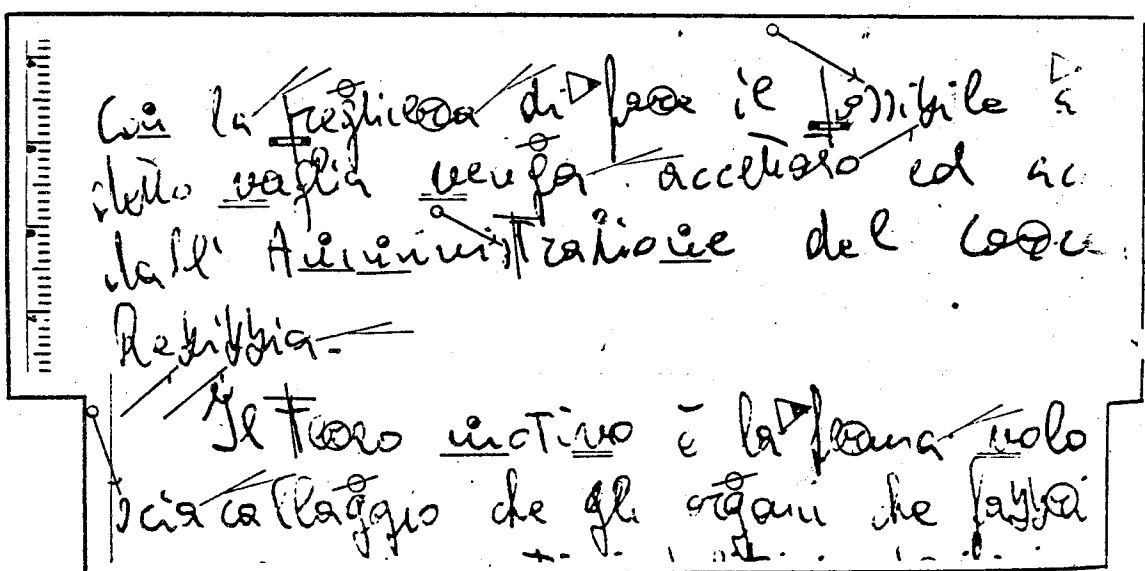 Con la preghiera di fare il possibile a
detto vaglia venga accettato ed ac
dall' Amministrazione del carce
Rebibbia.
Il tuo motivo è la ferma volo
sciacallaggio che gli organi che fabbri